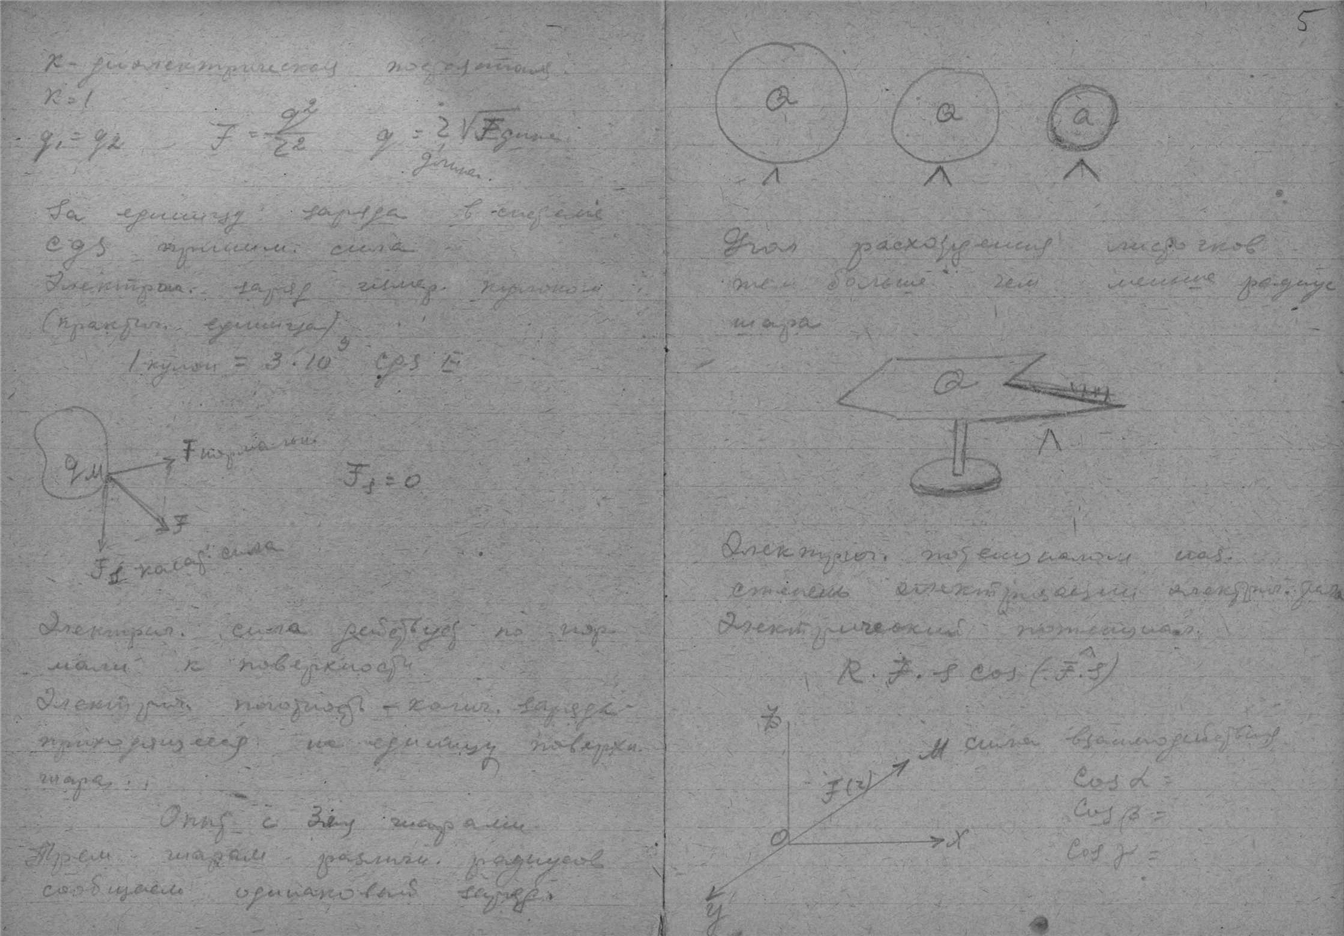 К - диэлектрическая постоянная
К=1
q₁ = q₂ F = q²/r² q = r√F дин
дина.
За единицу заряда в системе
cgs приним. сила
Электрич. заряд измер. кулоном
(практич. единица)
1 кулон = 3·10⁹ cgs E
q м F нормальн.
F
F₁ касат сила
F₁ = 0
Электрич. сила действует по нор
мали к поверхности
Электрич. плотность - колич. заряда
приходящееся на единицу поверхн.
шара...
Опыт с 3мя шарами
Трем шарам различн. радиусов
сообщаем одинаковый заряд.
5
Q Q Q
Угол расхождения листочков
тем больше чем меньше радиус
шара
Q
Электрич. потенциалом наз.
степень электризации электрич. тела
Электрический потенциал.
R. F. s cos (F.s)
Z
М сила взаимодействия
F(r)
Cos α =
Cos β =
Cos γ =
O X
y